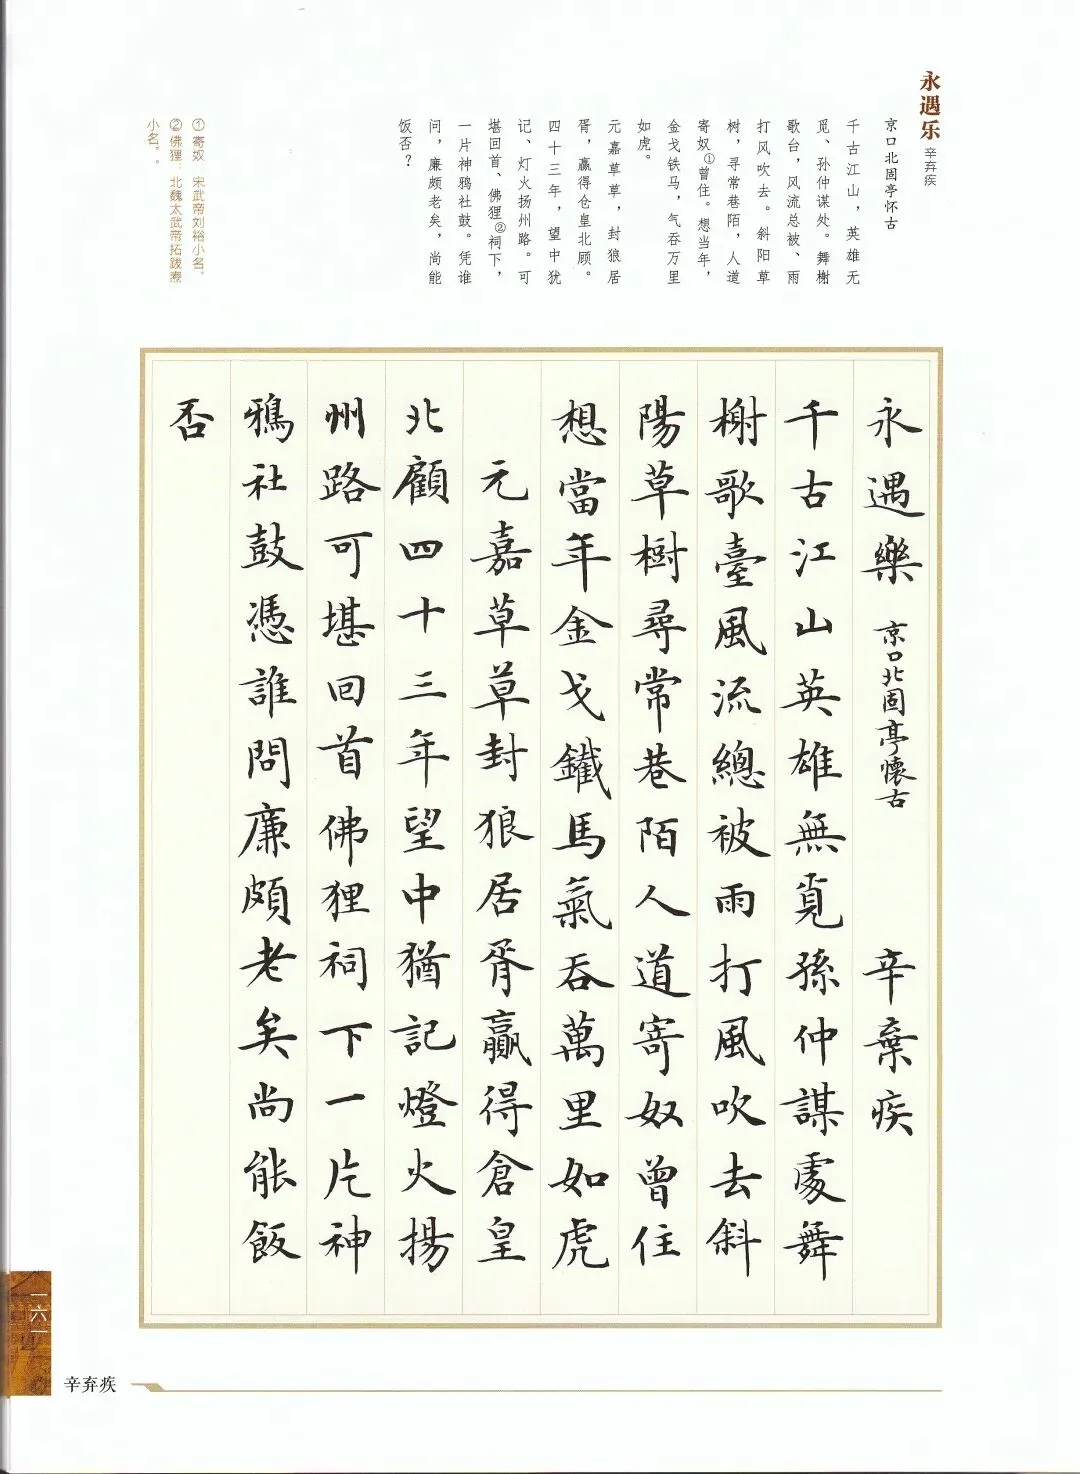 永遇乐 辛弃疾
京口北固亭怀古
千古江山，英雄无
觅、孙仲谋处。舞榭
歌台，风流总被、雨
打风吹去。斜阳草
树，寻常巷陌，人道
寄奴①曾住。想当年，
金戈铁马，气吞万里
如虎。
元嘉草草，封狼居
胥，赢得仓皇北顾。
四十三年，望中犹
记、灯火扬州路。可
堪回首、佛狸②祠下，
一片神鸦社鼓。凭谁
问，廉颇老矣，尚能
饭否？
① 寄奴：宋武帝刘裕小名。
② 佛狸：北魏太武帝拓跋焘
小名。。
永遇樂 京口北固亭懷古 辛棄疾
千古江山英雄無覓孫仲謀處舞
榭歌臺風流總被雨打風吹去斜
陽草樹尋常巷陌人道寄奴曾住
想當年金戈鐵馬氣吞萬里如虎
元嘉草草封狼居胥贏得倉皇
北顧四十三年望中猶記燈火揚
州路可堪回首佛狸祠下一片神
鴉社鼓憑誰問廉頗老矣尚能飯
否
一六一
辛弃疾